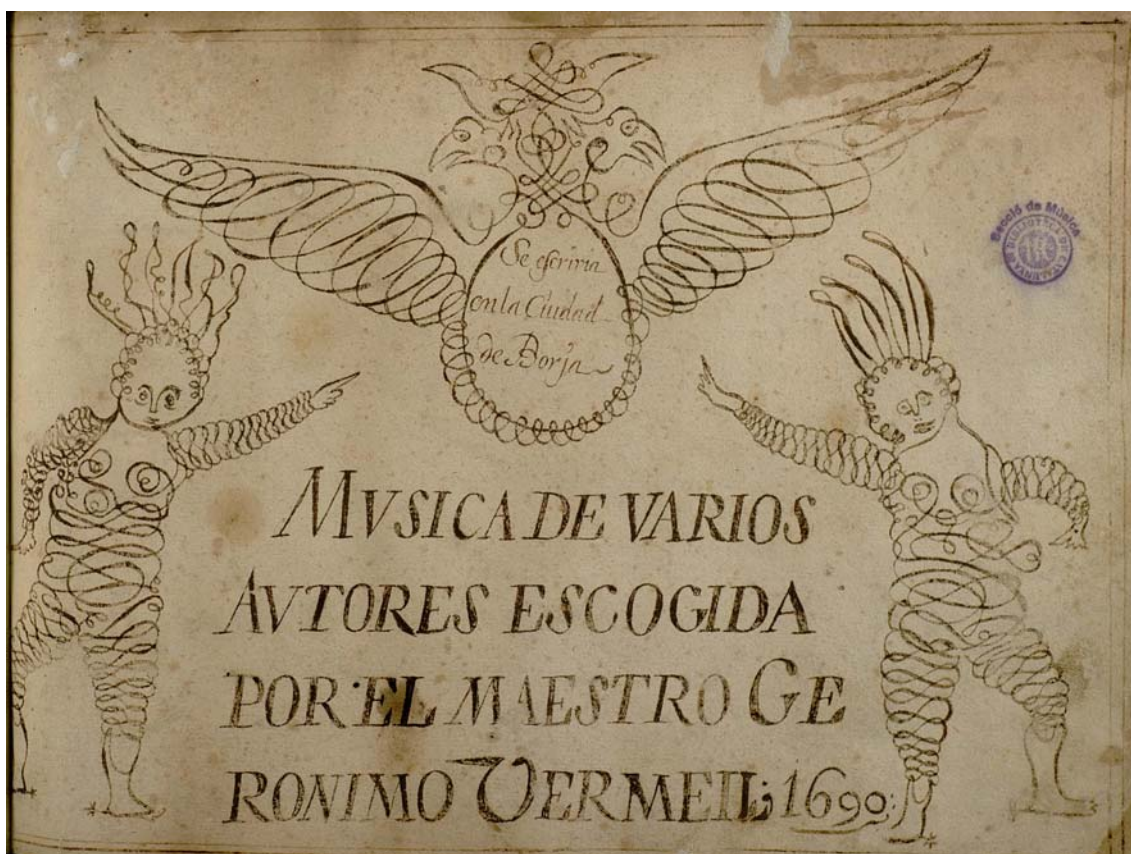 Se escriuia
en la Ciudad
de Borja
Secció de Música
BIBLIOTECA DE CATALUNYA
MVSICA DE VARIOS
AVTORES ESCOGIDA
POR EL MAESTRO GE
RONIMO VERMELL; 1690: